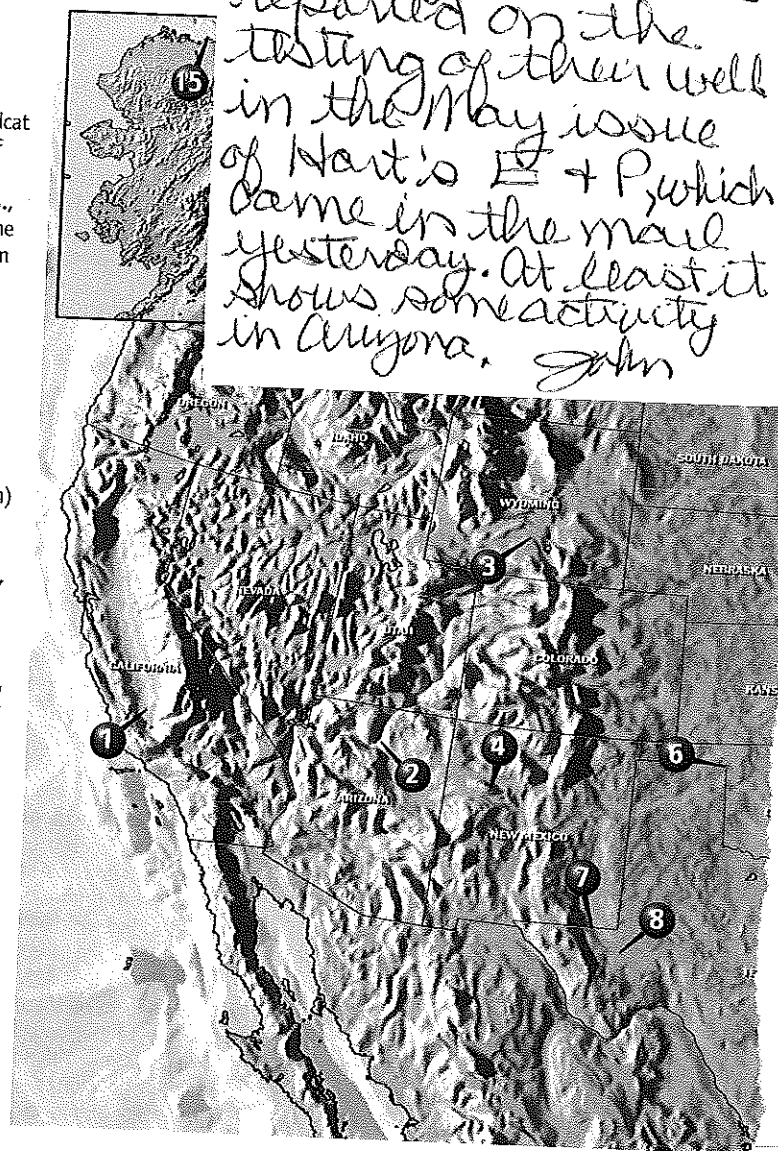 reported on the
testing of their well
in the May issue
of Hart's E + P, which
came in the mail
yesterday. At least it
shows some activity
in Arizona. John
15
lcat
.,
ne
n
n)
OREGON
IDAHO
SOUTH DAKOTA
WYOMING
3
NEBRASKA
NEVADA
UTAH
COLORADO
KANS
CALIFORNIA
1
4
6
2
ARIZONA
NEW MEXICO
7
8
TE